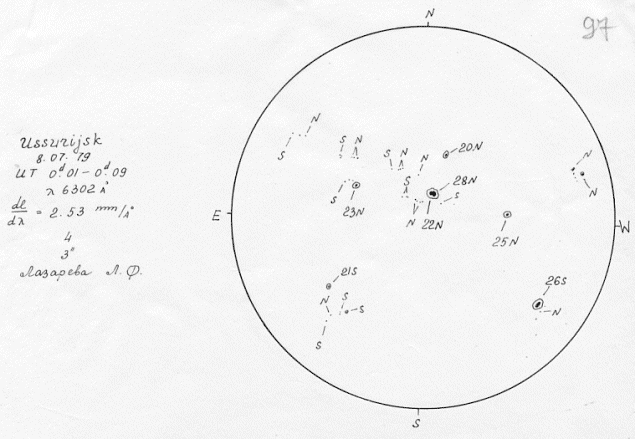 N
97
Ussurijsk
8.07.79
UT 0ᵈ.01 – 0ᵈ.09
λ 6302 Å
dl/dλ = 2.53 mm/Å
4
3"
Лазарева Л. Ф.
N
S
S N
S N
N
20N
N
N
S
23N
S
28N
S
N
22N
E
W
25N
21S
N S
S
S
26S
N
S